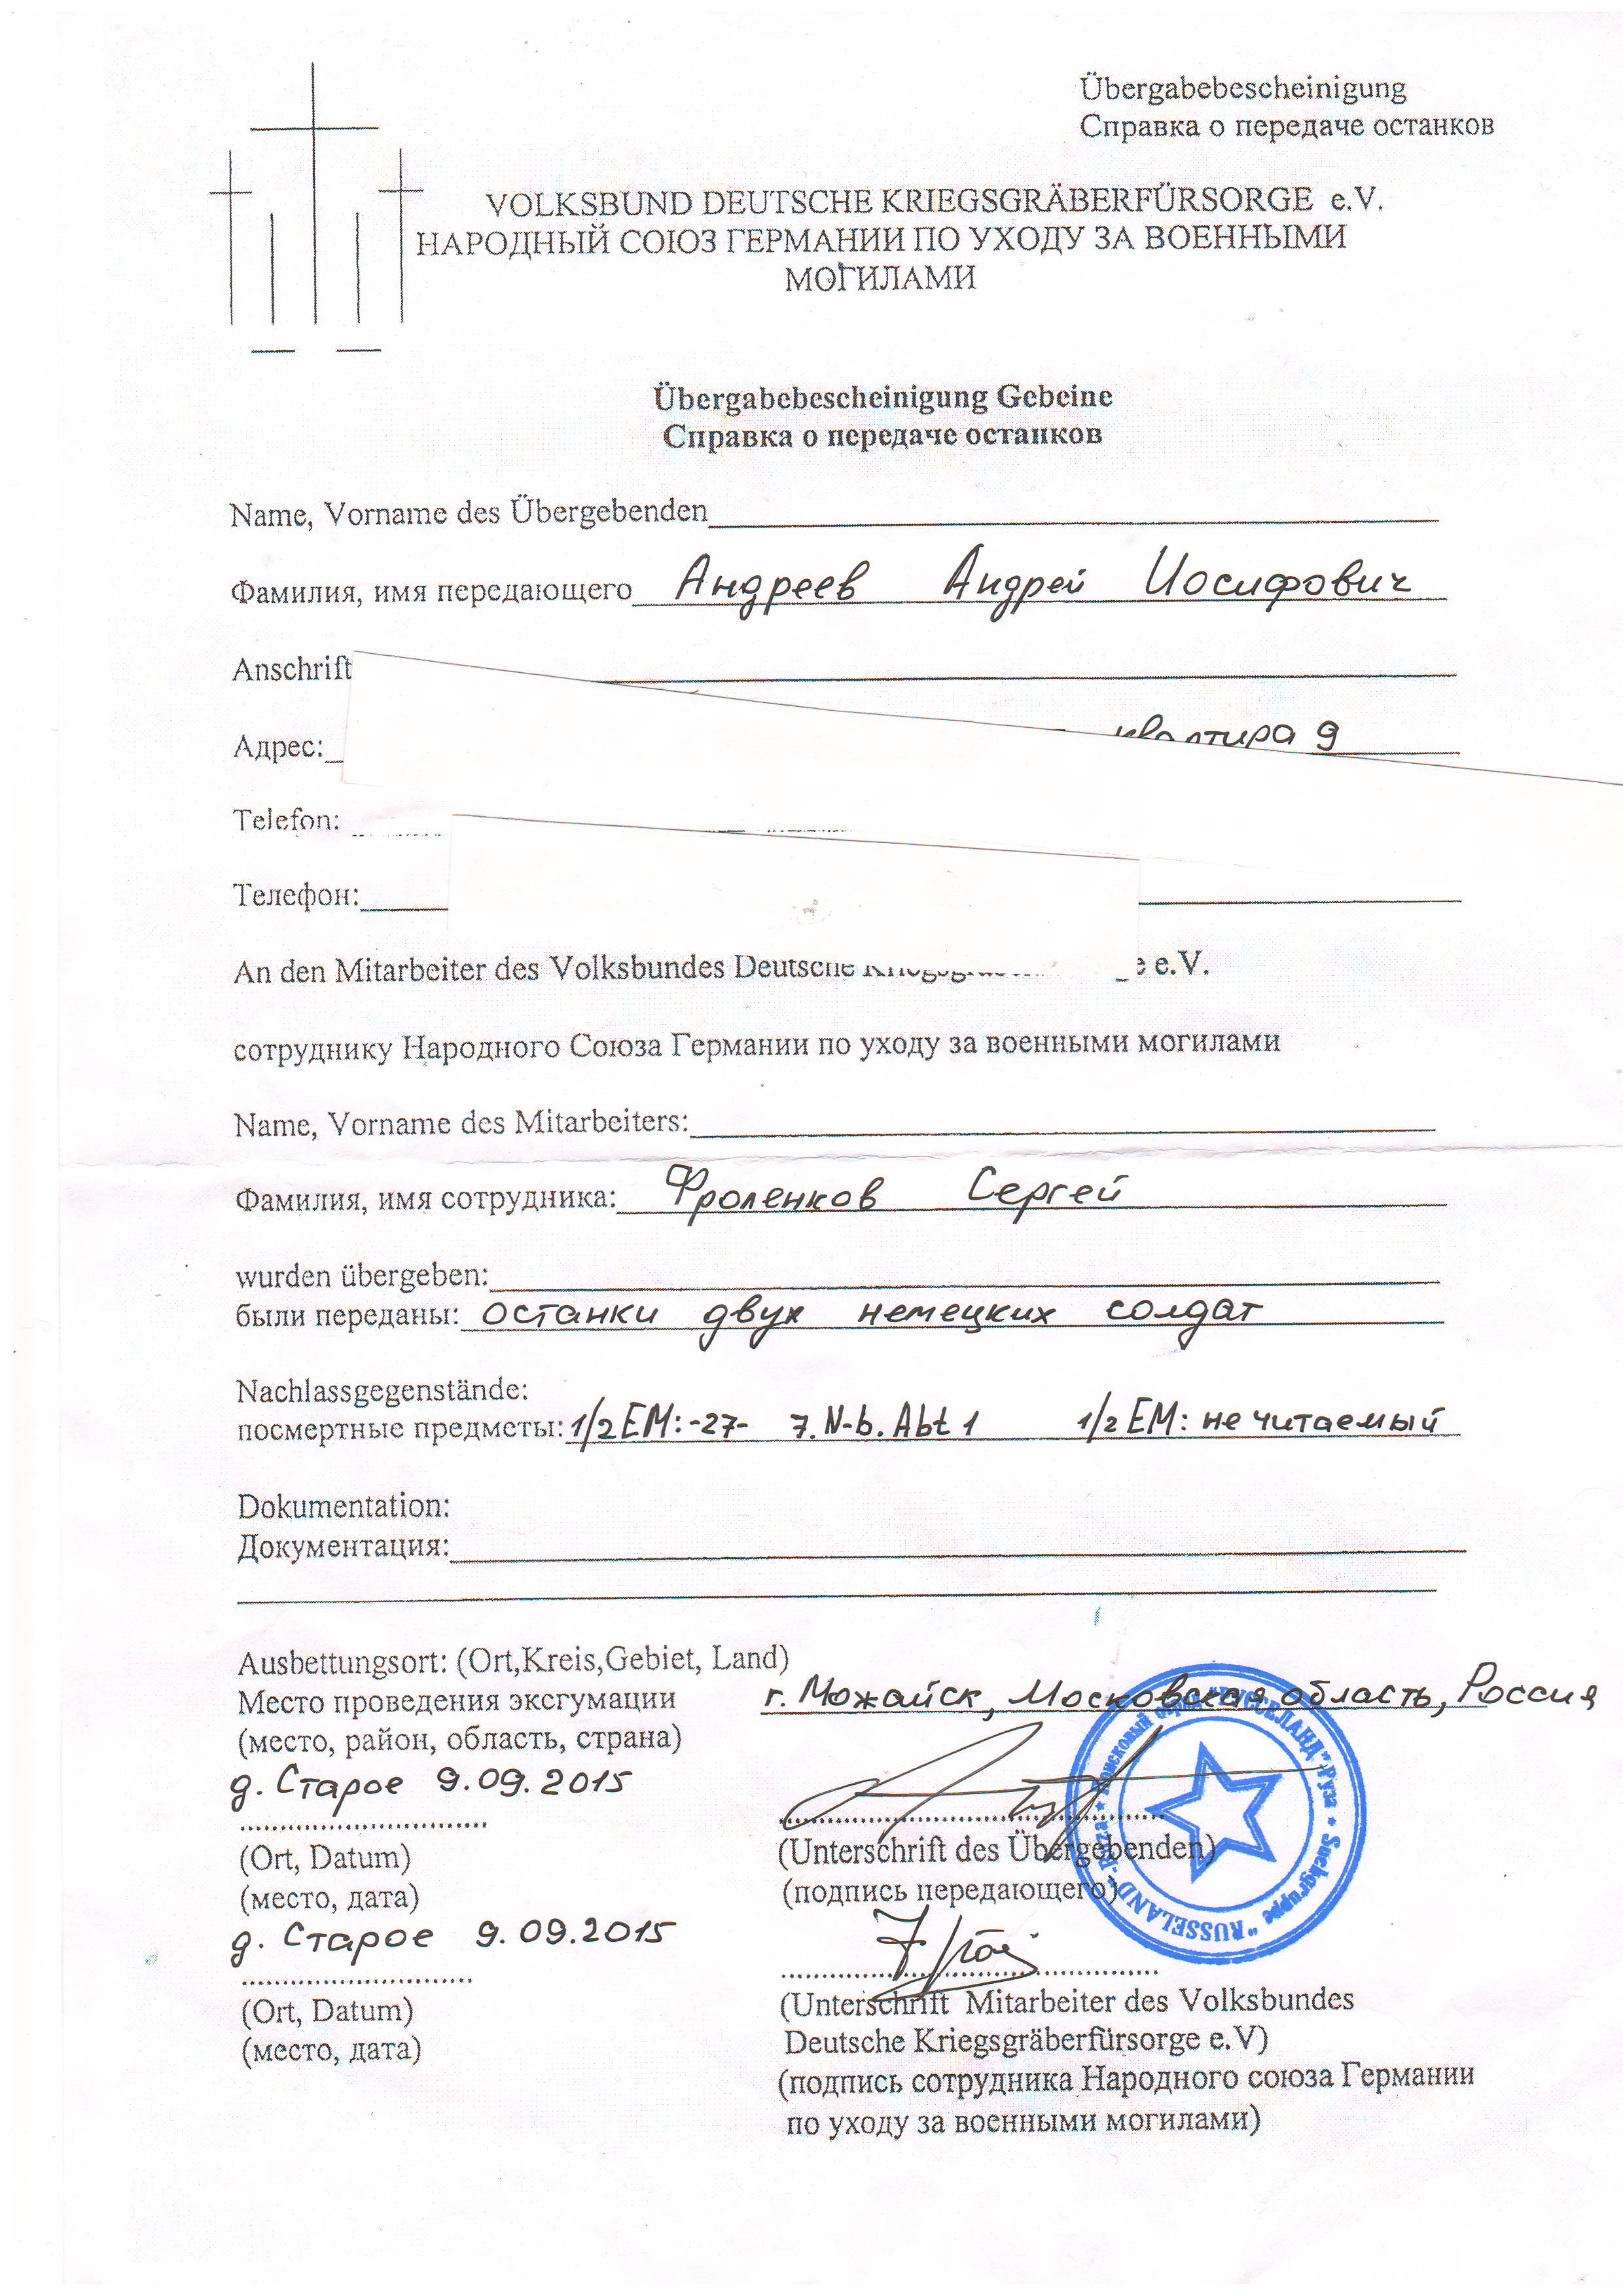 Übergabebescheinigung
Справка о передаче останков
VOLKSBUND DEUTSCHE KRIEGSGRÄBERFÜRSORGE e.V.
НАРОДНЫЙ СОЮЗ ГЕРМАНИИ ПО УХОДУ ЗА ВОЕННЫМИ
МОГИЛАМИ
Übergabebescheinigung Gebeine
Справка о передаче останков
Name, Vorname des Übergebenden
Фамилия, имя передающего Андреев Андрей Иосифович
Anschrift
Адрес: квартира 9
Telefon:
Телефон:
An den Mitarbeiter des Volksbundes Deutsche e.V.
сотруднику Народного Союза Германии по уходу за военными могилами
Name, Vorname des Mitarbeiters:
Фамилия, имя сотрудника: Фроленков Сергей
wurden übergeben:
были переданы: останки двух немецких солдат
Nachlassgegenstände:
посмертные предметы: 1/2 EM: -27- 7. N-b. Abt 1 1/2 EM: не читаемый
Dokumentation:
Документация:
Ausbettungsort: (Ort,Kreis,Gebiet, Land)
Место проведения эксгумации г. Можайск, Московская область, Россия
(место, район, область, страна)
д. Старое 9.09.2015
(Ort, Datum) (Unterschrift des Übergebenden)
(место, дата) (подпись передающего)
Поисковый отряд "РУССЕЛАНД" Руза * Suchgruppe "RUSSELAND" Ruza *
д. Старое 9.09.2015
(Ort, Datum) (Unterschrift Mitarbeiter des Volksbundes
(место, дата) Deutsche Kriegsgräberfürsorge e.V)
(подпись сотрудника Народного союза Германии
по уходу за военными могилами)